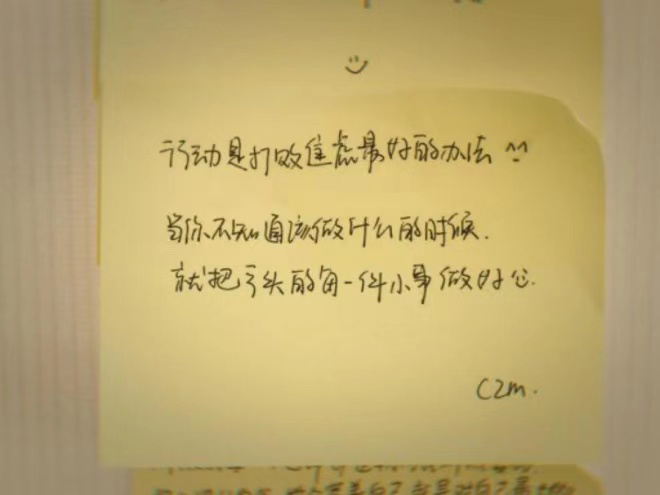 行动是打败焦虑最好的办法 ^^
当你不知道该做什么的时候.
就把手头的每一件小事做好☺.
CZM.